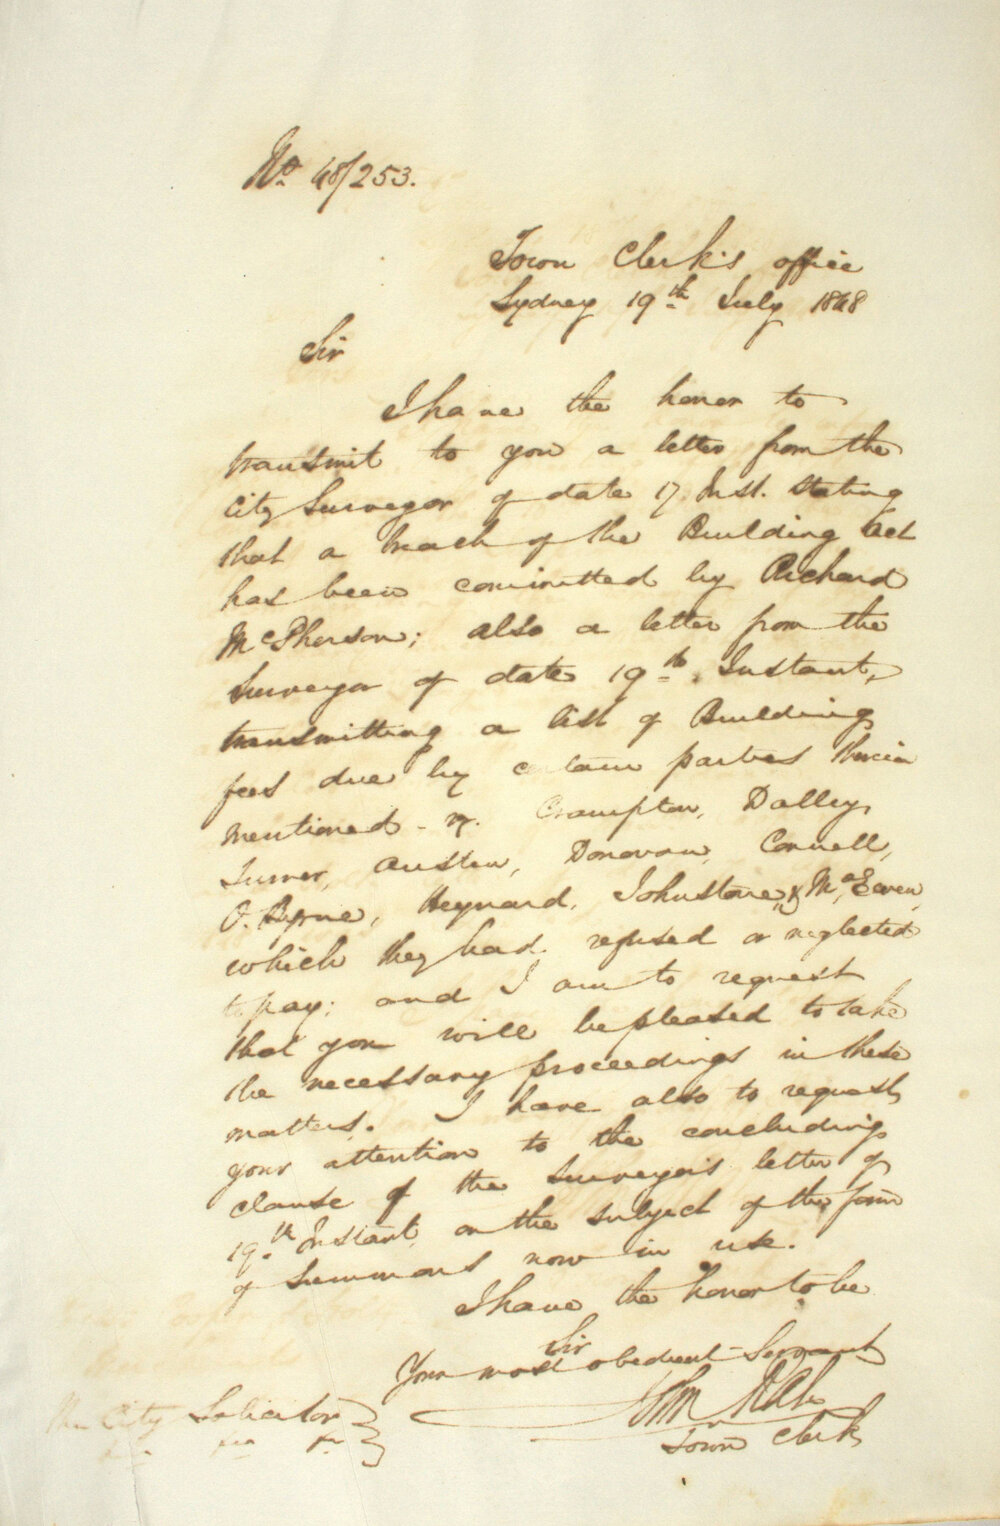 No. 48/253.
Town Clerk's office
Sydney 19th July 1848
Sir
I have the honor to
transmit to you a letter from the
City Surveyor of date 17 Inst. stating
that a breach of the Building Act
has been committed by Richard
McPherson; also a letter from the
Surveyor of date 19th Instant,
transmitting a list of Building
fees due by certain parties therein
mentioned - Crampton, Dalley,
Turner, Austen, Donovan, Connell,
O'Byrne, Heynard, Johnstone, & McEwen,
which they had refused or neglected
to pay; and I am to request
that you will be pleased to take
the necessary proceedings in these
matters. I have also to request
your attention to the concluding
clause of the Surveyor's letter of
19th Instant, on the subject of the form
of Summons now in use.
I have the honor to be
Sir
Your most obedient Servant
John
Town Clerk
The City Solicitor